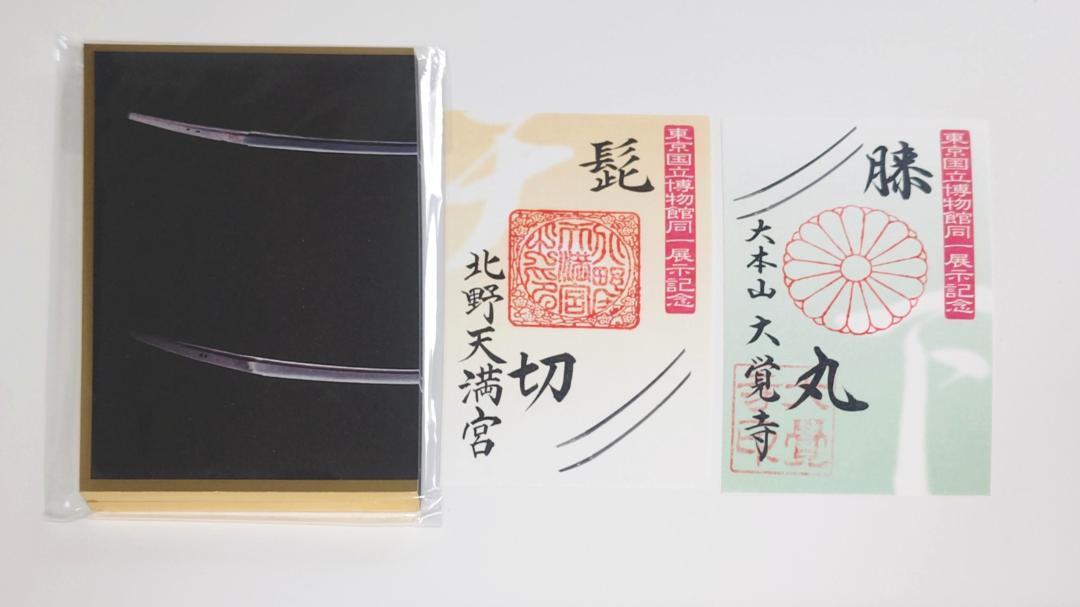 東京国立博物館同一展示記念
髭
切
北野天満宮
東京国立博物館同一展示記念
膝
丸
大本山 大覚寺
大覺
寺印